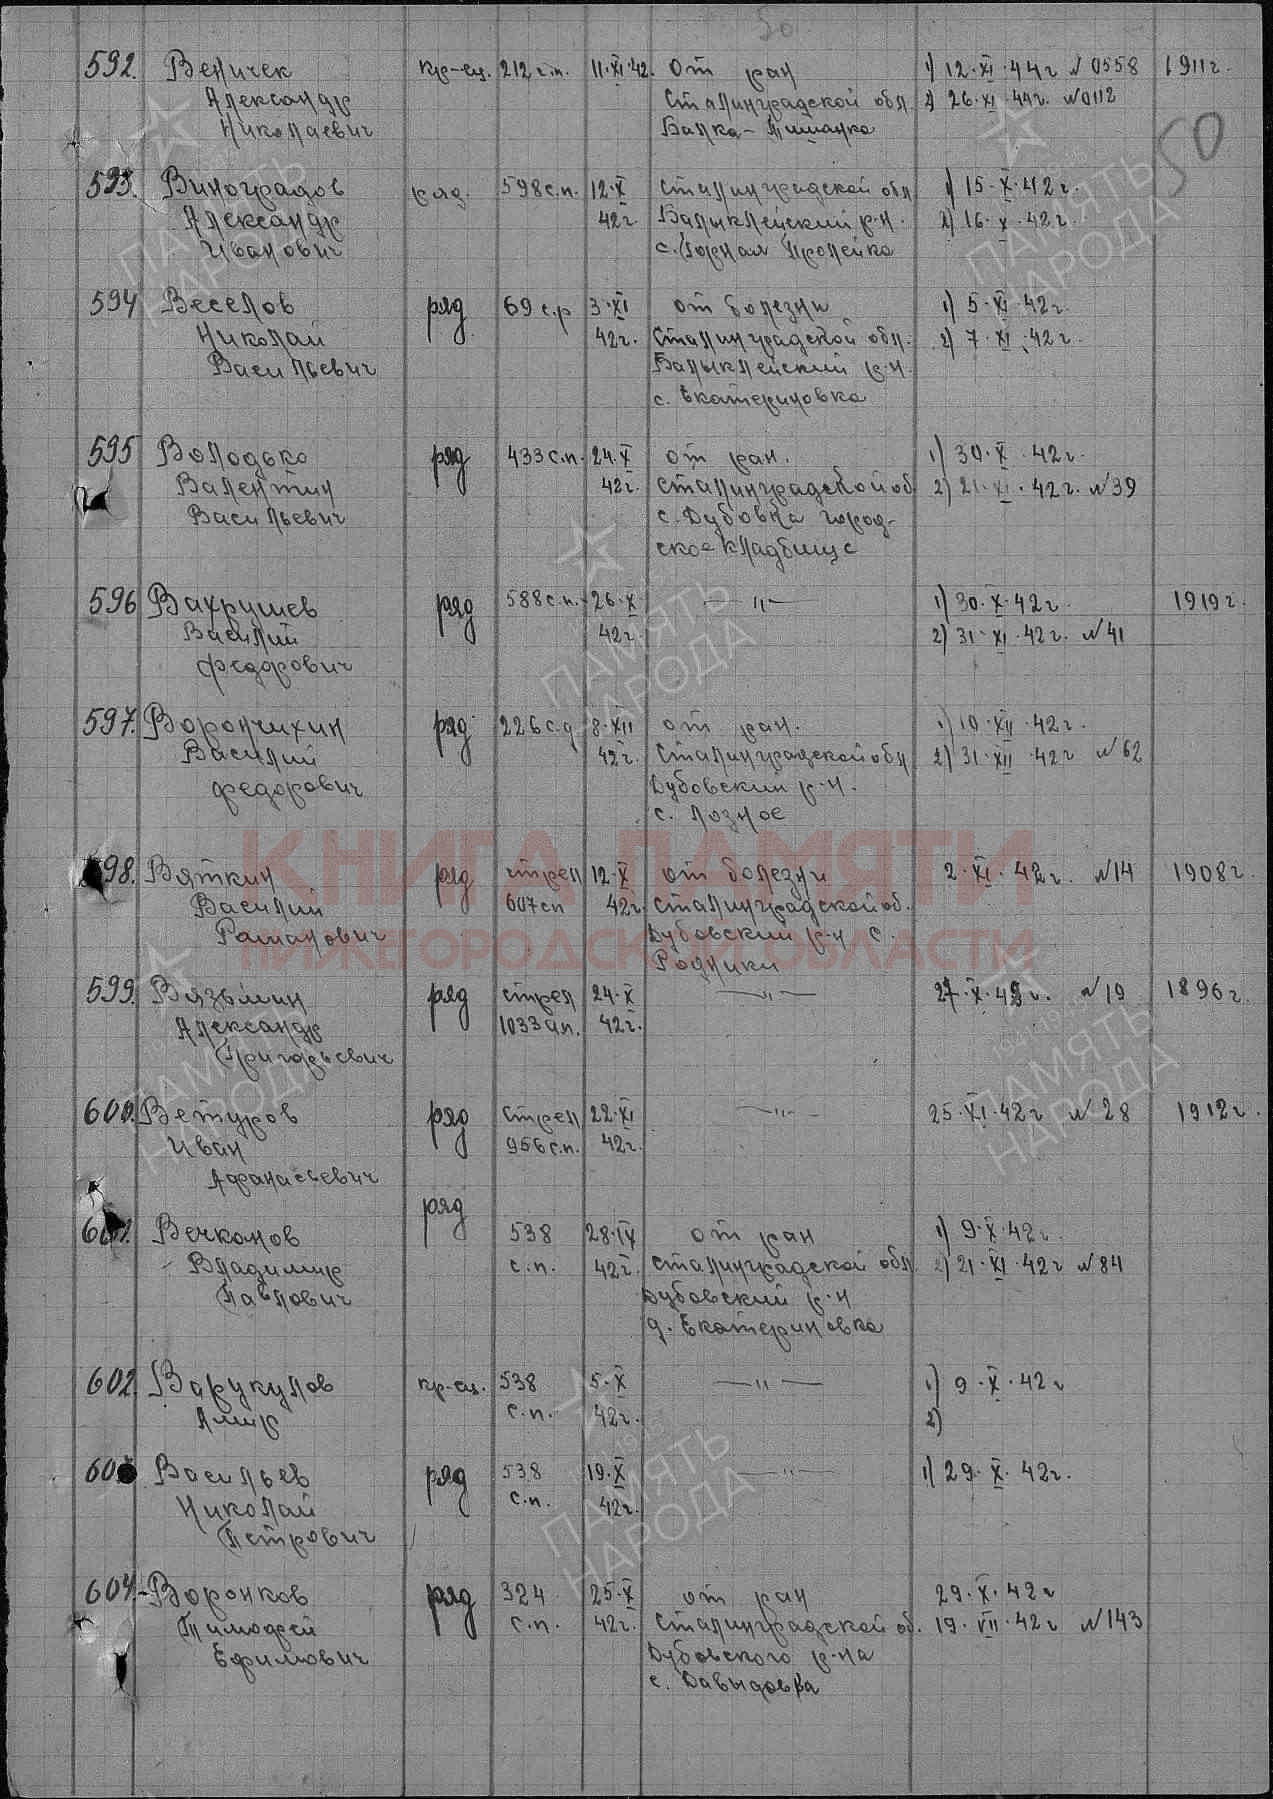 50
592. Веничек кр-ец. 212 г.п. 11·XI·42. от ран 1) 12·XI·44г N0558 1911г.
Александр Сталинградской обл 2) 26·XI·44г. N0112
Николаевич Балка-
50
593. Виноградов ряд. 598с.п. 12·X Сталинградской обл 1) 15·X·42г.
Александр 42г. Балыклейский р-н. 2) 16·X·42г.
Иванович с. Горная Пролейка
594 Веселов ряд 69 с.р 3·XI от болезни 1) 5·XI·42г.
Николай 42г. Сталинградской обл. 2) 7·XI·42г.
Васильевич Балыклейский р-н.
с. Екатериновка
595 Володько ряд 433с.п. 24·X от ран. 1) 30·X·42г.
Валентин 42г. Сталинградской об. 2) 21·XI·42г. N39
Васильевич с. Дубовка город-
ское кладбище
596 Вахрушев ряд 588с.п. 26·X —"— 1) 30·X·42г. 1919г.
Василий 42г. 2) 31·XI·42г. N41
Федорович
597.Ворончихин ряд 226с.д 8·XII от ран. 1) 10·XII·42г.
Василий 42г. Сталинградской обл 2) 31·XII·42г N62
Федорович Дубовский р-н.
с. Лозное
98. Вяткин ряд стрел 12·X от болезни 2·XI·42г. N14 1908г.
Василий 607сп 42г. Сталинградской об.
Романович Дубовский р-н с.
Родники
599. Вязьмин ряд стрел 24·X —"— 27·X·42г. N19 1896г.
Александр 1033 42г.
Григорьевич
600. Ветуров ряд стрел 22·XI —"— 25·XI·42г N28 1912г.
Иван 956с.п. 42г.
Афанасьевич
601. Вечканов ряд 538 28·IX от ран 1) 9·X·42г.
Владимир с.п. 42г. Сталинградской обл. 2) 21·XI·42г N84
Павлович Дубовский р-н
д. Екатериновка
602. Варукулов кр-ец. 538 5·X —"— 1) 9·X·42г
Амир с.п. 42г. 2)
60 Васильев ряд 538 19·X —"— 1) 29·X·42г.
Николай с.п. 42г.
Петрович
604.- Воронков ряд 324 25·X от ран 29·X·42г
Тимофей с.п. 42г. Сталинградской об. 19·VII·42г N143
Ефимович Дубовского р-на
с. Давыдовка
КНИГА ПАМЯТИ
НИЖЕГОРОДСКОЙ ОБЛАСТИ
ПАМЯТЬ
НАРОДА
ПАМЯТЬ
НАРОДА
ПАМЯТЬ
НАРОДА
ПАМЯТЬ
НАРОДА
ПАМЯТЬ
НАРОДА
ПАМЯТЬ
НАРОДА